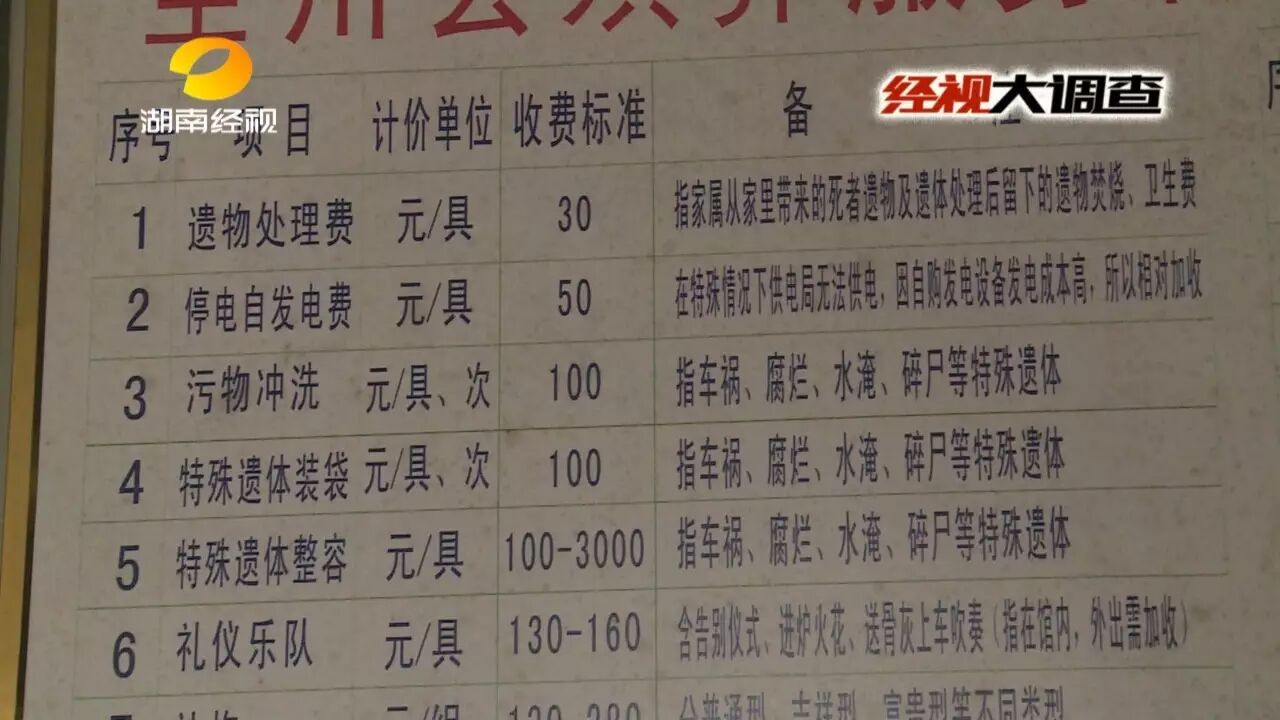 服务
湖南经视
经视大调查
序号 项目 计价单位 收费标准 备
1 遗物处理费 元/具 30 指家属从家里带来的死者遗物及遗体处理后留下的遗物焚烧、卫生费
2 停电自发电费 元/具 50 在特殊情况下供电局无法供电,因自购发电设备发电成本高,所以相对加收
3 污物冲洗 元/具、次 100 指车祸、腐烂、水淹、碎尸等特殊遗体
4 特殊遗体装袋 元/具、次 100 指车祸、腐烂、水淹、碎尸等特殊遗体
5 特殊遗体整容 元/具 100-3000 指车祸、腐烂、水淹、碎尸等特殊遗体
6 礼仪乐队 元/具 130-160 含告别仪式、进炉火花、送骨灰上车吹奏(指在馆内,外出需加收)
分普通型、吉祥型、富贵型等不同类型